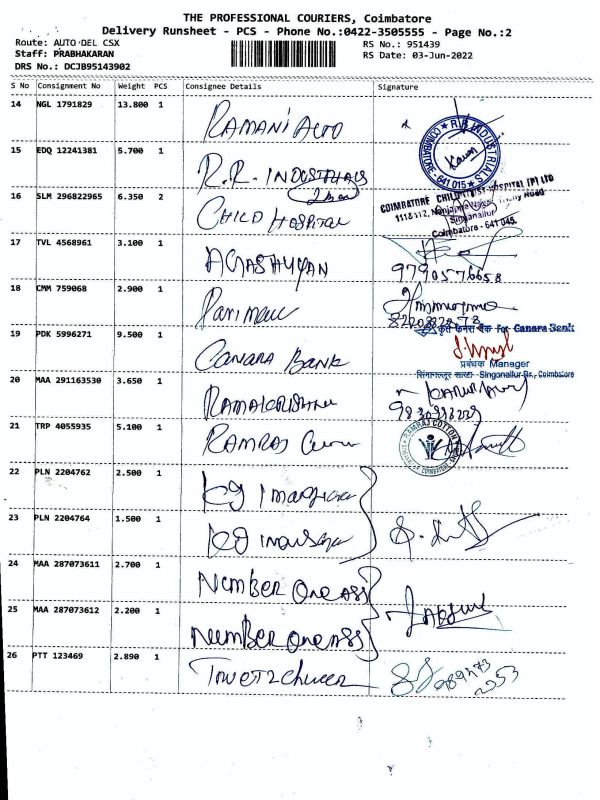 THE PROFESSIONAL COURIERS, Coimbatore
Delivery Runsheet - PCS - Phone No.:0422-3505555 - Page No.:2
Route: AUTO DEL CSX RS No.: 951439
Staff: PRABHAKARAN RS Date: 03-Jun-2022
DRS No.: DCJB95143902
S No Consignment No Weight PCS Consignee Details Signature
14 NGL 1791829 13.800 1 RAMANI AUTO
15 EDQ 12241381 5.700 1 R.R. INDUSTRIALS
COIMBATORE - 641 015 ★ R.R. INDUSTRIALS ★
16 SLM 296822965 6.350 2 CHILD HOSPITAL
COIMBATORE CHILD HOSPITAL (P) LTD
Road
Singanallur
Coimbatore - 641 045.
17 TVL 4568961 3.100 1 AGASTHYAN
9790576658
18 CMM 759068 2.900 1
19 PDK 5996271 9.500 1 CANARA BANK
कृते केनरा बैंक For Canara Bank
प्रबंधक Manager
Singanallur Br., Coimbatore
20 MAA 291163530 3.650 1 RAMAKRISHNA
21 TRP 4055935 5.100 1 RAMRAJ
RAMRAJ COTTON
COIMBATORE
22 PLN 2204762 2.500 1
23 PLN 2204764 1.500 1
24 MAA 287073611 2.700 1 NUMBER ONE ASS
25 MAA 287073612 2.200 1 NUMBER ONE ASS
26 PTT 123469 2.890 1